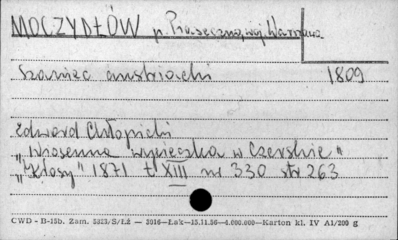 MOCZYDŁÓW p. Piaseczno, woj. Warszawa
Szaniec austriacki 1809
Edward Chłopicki
"Wiosenna wycieczka w Czerskie"
"Kłosy" 1871 t. XIII nr 330 str 263
CWD - B-15b. Zam. 2523/S/ŁŻ — 3016—Łak—15.11.56—4.000.000—Karton kl. IV A1/200 g